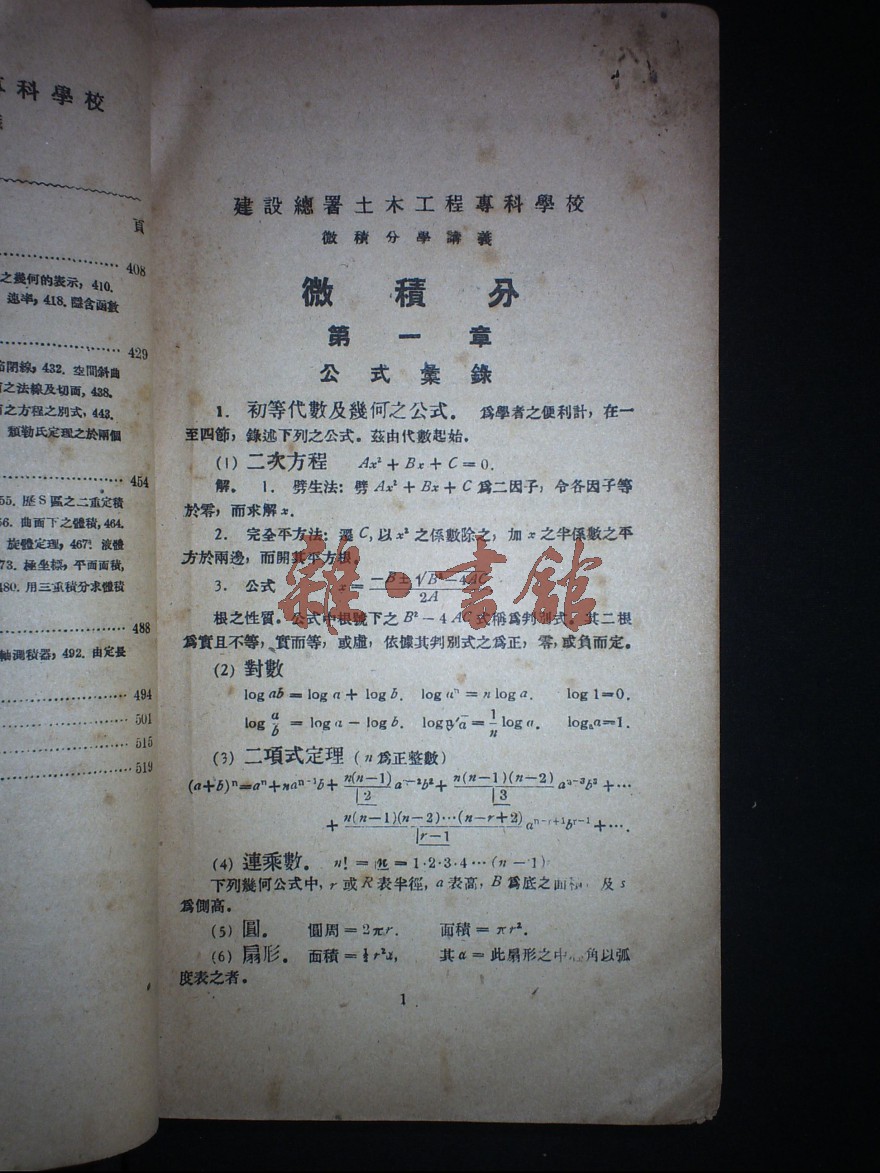 科學校
頁
408
之幾何的表示，410.
速率，418. 隱含函數
429
432. 空間斜曲
之法線及切面，438.
之方程之別式，443.
類勒氏定理之於兩個
454
55. 歷S區之二重定積
56. 曲面下之體積，464.
旋體定理，467! 液體
73. 極坐標，平面面積，
480. 用三重積分求體積
488
軸測積器，492. 由定長
494
501
515
519
建設總署土木工程專科學校
微積分學講義
微積分
第一章
公式彙錄
1. 初等代數及幾何之公式。 爲學者之便利計，在一
至四節，錄述下列之公式。茲由代數起始。
(1) 二次方程 Ax² + Bx + C = 0.
解。 1. 劈生法：劈 Ax² + Bx + C 爲二因子，令各因子等
於零，而求解 x.
2. 完全平方法：遷 C, 以 x² 之係數除之，加 x 之半係數之平
方於兩邊，而開其平方根。
3. 公式 x = (−B ± √(B² − 4AC)) / 2A
根之性質。公式中根號下之 B² − 4 AC 式稱爲判別式。其二根
爲實且不等，實而等，或虛，依據其判別式之爲正，零，或負而定。
(2) 對數
log ab = log a + log b. log aⁿ = n log a. log 1=0.
log a/b = log a − log b. log ⁿ√a = 1/n log a. logₐa=1.
(3) 二項式定理 (n 爲正整數)
(a+b)ⁿ=aⁿ+naⁿ⁻¹b+ n(n−1)/|2 aⁿ⁻²b²+ n(n−1)(n−2)/|3 aⁿ⁻³b³ +⋯
+ n(n−1)(n−2)⋯(n−r+2)/|r−1 aⁿ⁻ʳ⁺¹bʳ⁻¹ +⋯.
(4) 連乘數。 n! = |n = 1·2·3·4⋯(n−1)
下列幾何公式中，r 或 R 表半徑，a 表高，B 爲底之面積，及 s
爲側高。
(5) 圓。 圓周 = 2πr. 面積 = πr².
(6) 扇形。 面積 = ½ r²α, 其 α = 此扇形之中心角以弧
度表之者。
1
雜·書館